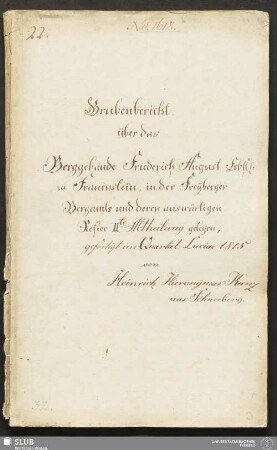 22.
No 1618.
Grubenbericht
über das
Berggebäude Friederich August Erbst.
zu Frauenstein, in der Freyberger
Bergamts und deren auswärtigen
Refier IIte Abtheilung gelegen,
gefertigt im Quartal Luciae 1815
von
Heinrich Hieronymus Kunz
aus Schneeberg.
SLUB
Wir führen Wissen.
UNIVERSITÄTSBIBLIOTHEK
FREIBERG